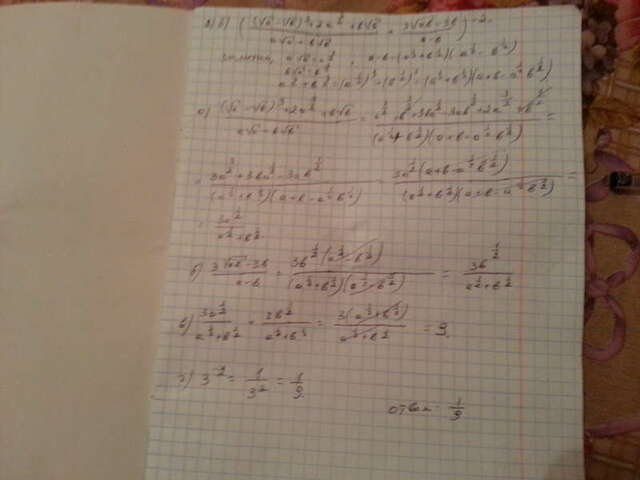 2) б) ( ((√a-√b)³+2a^(3/2)+b√b)/(a√a+b√b) + (3√ab-3b)/(a-b) )^-2
a√a=a^(3/2) , a-b=(a^(1/2)+b^(1/2))(a^(1/2)-b^(1/2))
b√b=b^(3/2)
a^(3/2)+b^(3/2)=(a^(1/2))³+(b^(1/2))³=(a^(1/2)+b^(1/2))(a+b-a^(1/2)b^(1/2))
a) ((√a-√b)³+2a^(3/2)+b√b)/(a√a+b√b) = (a^(3/2)-b^(3/2)+3ba^(1/2)-3ab^(1/2)+2a^(3/2)+b^(3/2))/((a^(1/2)+b^(1/2))(a+b-a^(1/2)b^(1/2))) =
= (3a^(3/2)+3ba^(1/2)-3ab^(1/2))/((a^(1/2)+b^(1/2))(a+b-a^(1/2)b^(1/2))) = (3a^(1/2)(a+b-a^(1/2)b^(1/2)))/((a^(1/2)+b^(1/2))(a+b-a^(1/2)b^(1/2))) =
= 3a^(1/2)/(a^(1/2)+b^(1/2))
б) (3√ab-3b)/(a-b) = (3b^(1/2)(a^(1/2)-b^(1/2)))/((a^(1/2)+b^(1/2))(a^(1/2)-b^(1/2))) = 3b^(1/2)/(a^(1/2)+b^(1/2))
в) 3a^(1/2)/(a^(1/2)+b^(1/2)) + 3b^(1/2)/(a^(1/2)+b^(1/2)) = 3(a^(1/2)+b^(1/2))/(a^(1/2)+b^(1/2)) = 3.
г) 3^-2 = 1/3² = 1/9.
ответ: 1/9